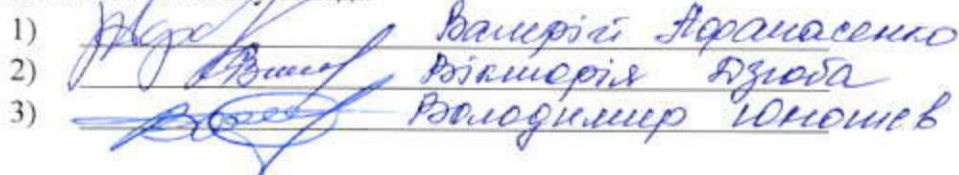 1) Валерій Афанасенко
2) Вікторія Дзюба
3) Володимир Юношев